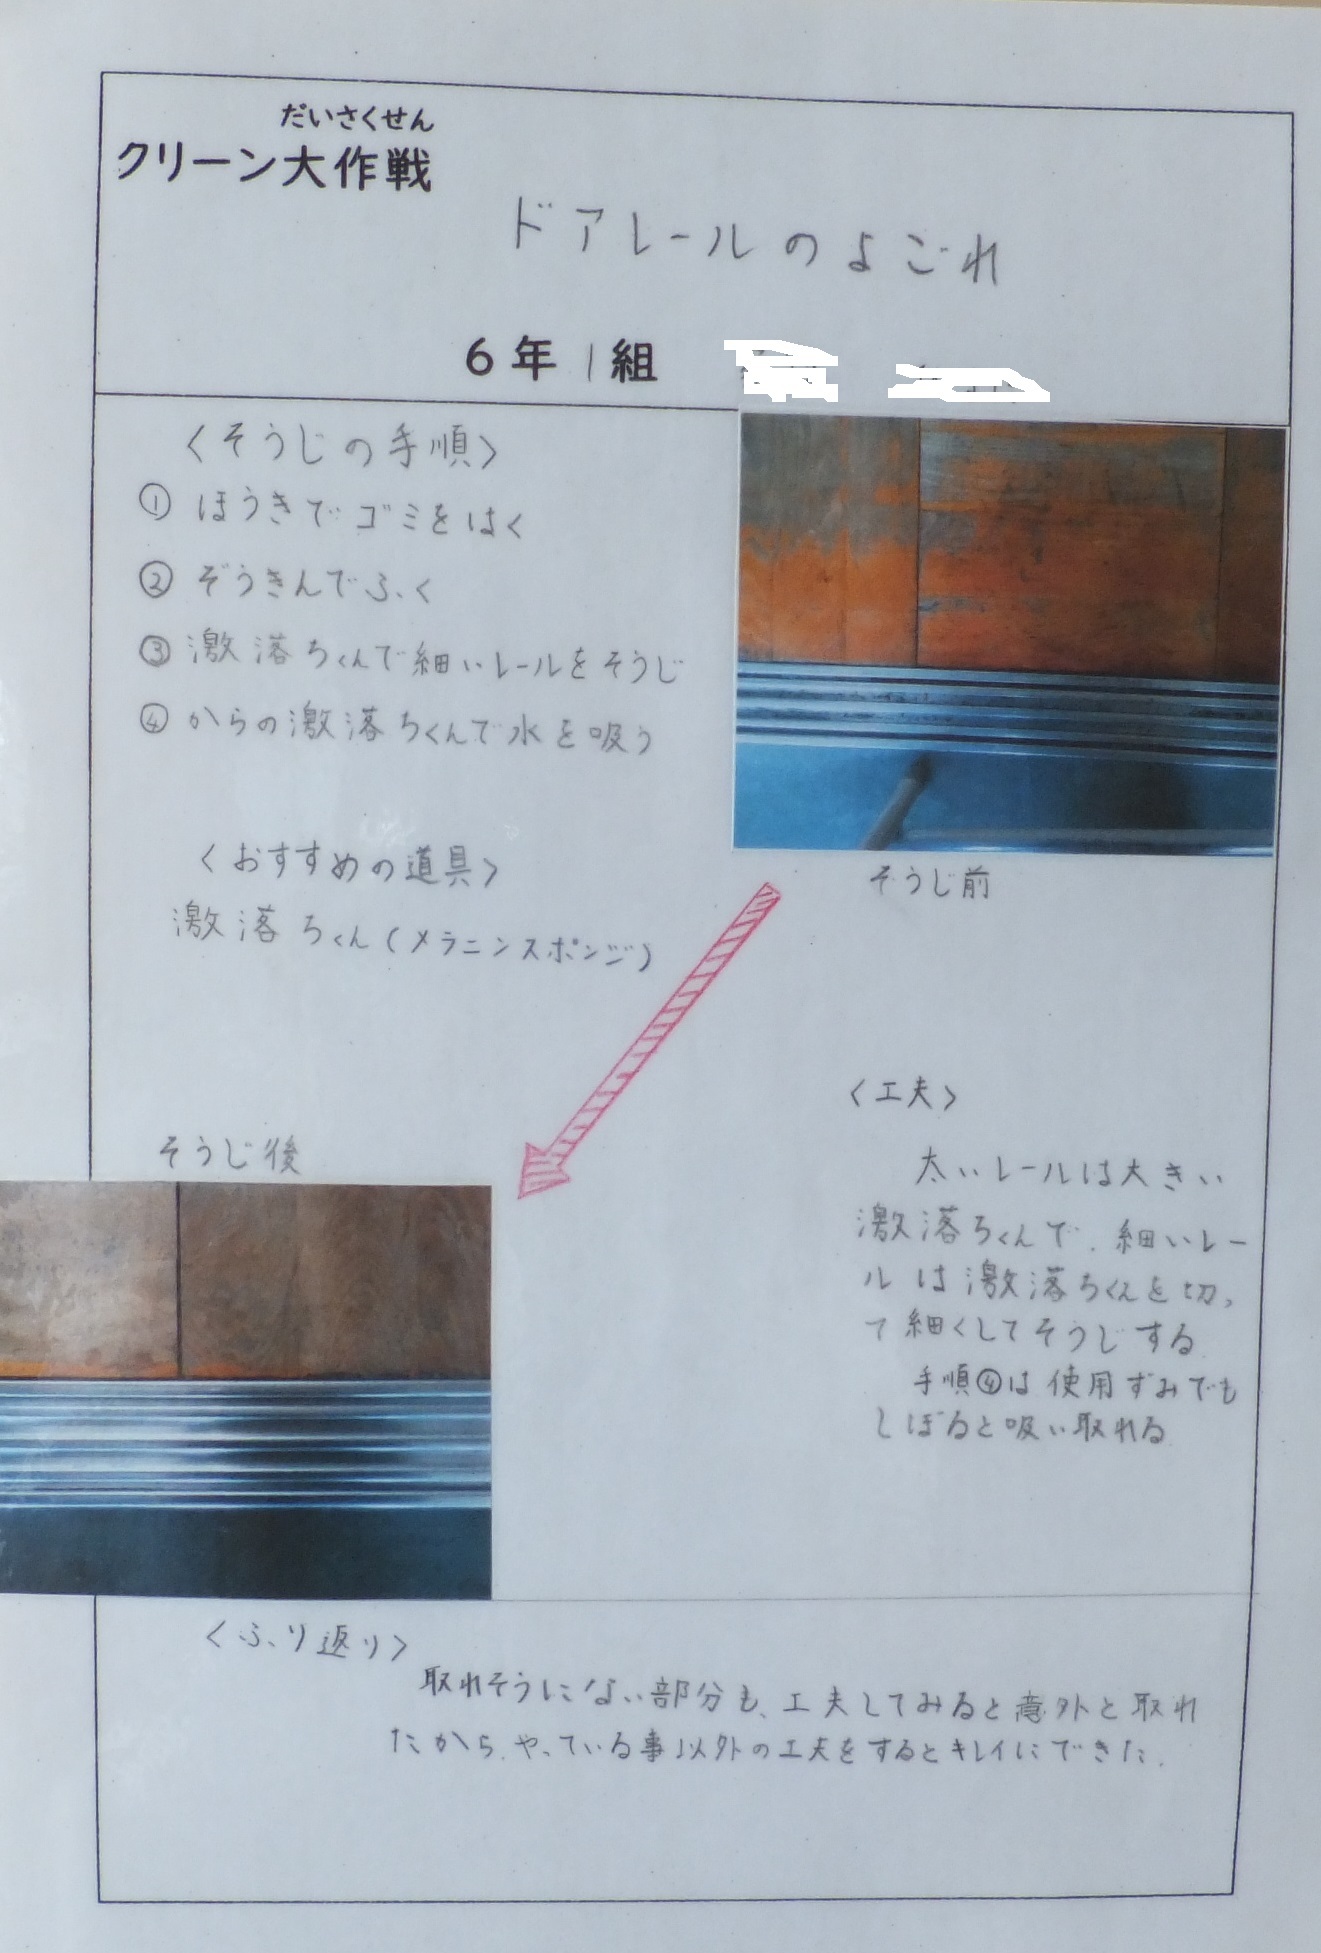 だいさくせん
クリーン大作戦
ドアレールのよごれ
6年1組
〈そうじの手順〉
① ほうきでゴミをはく
② ぞうきんでふく
③ 激落ちくんで細いレールをそうじ
④ からの激落ちくんで水を吸う
〈おすすめの道具〉
激落ちくん(メラニンスポンジ)
そうじ前
そうじ後
〈工夫〉
太いレールは大きい
激落ちくんで、細いレー
ルは激落ちくんを切っ
て細くしてそうじする
手順④は使用ずみでも
しぼると吸い取れる
〈ふり返り〉
取れそうにない部分も、工夫してみると意外と取れ
たから、やっている事以外の工夫をするとキレイにできた。